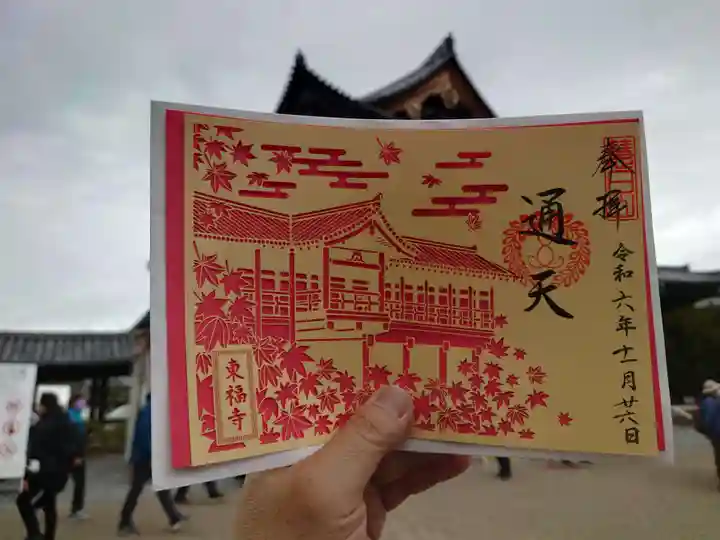 奉拝
通天
令和六年十一月廿六日
東福寺